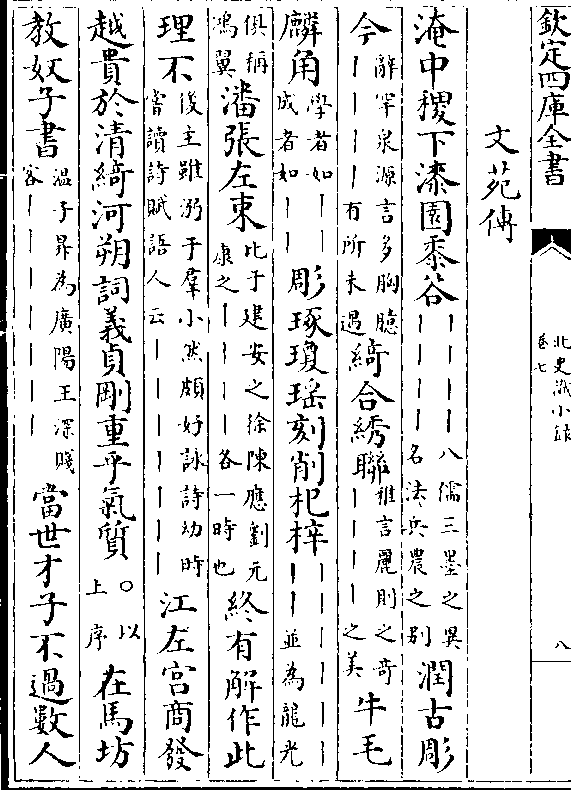 欽定四庫全書
北史識小録
卷七
八
文苑傳
淹中稷下漆園黍谷｜｜｜｜八儒三墨之異｜｜｜｜名法兵農之别潤古彫
今辭罕泉源言多胸臆｜｜｜｜有所未遇綺合綉聯雅言麗則之奇｜｜｜｜之美牛毛
麟角學者如｜｜成者如｜｜彫琢瓊瑶刻削杞梓｜｜｜｜｜｜｜｜並為龍光
俱稱鴻翼潘張左束比于建安之徐陳應劉元康之｜｜｜｜各一時也終有解作此
理不後主雖溺于羣小然頗好詠詩幼時嘗讀詩賦語人云｜｜｜｜｜｜江左宫商發
越貴於清綺河朔詞義貞剛重乎氣質○以上序在馬坊
教奴子書温子昇為廣陽王深賤客｜｜｜｜｜｜當世才子不過數人